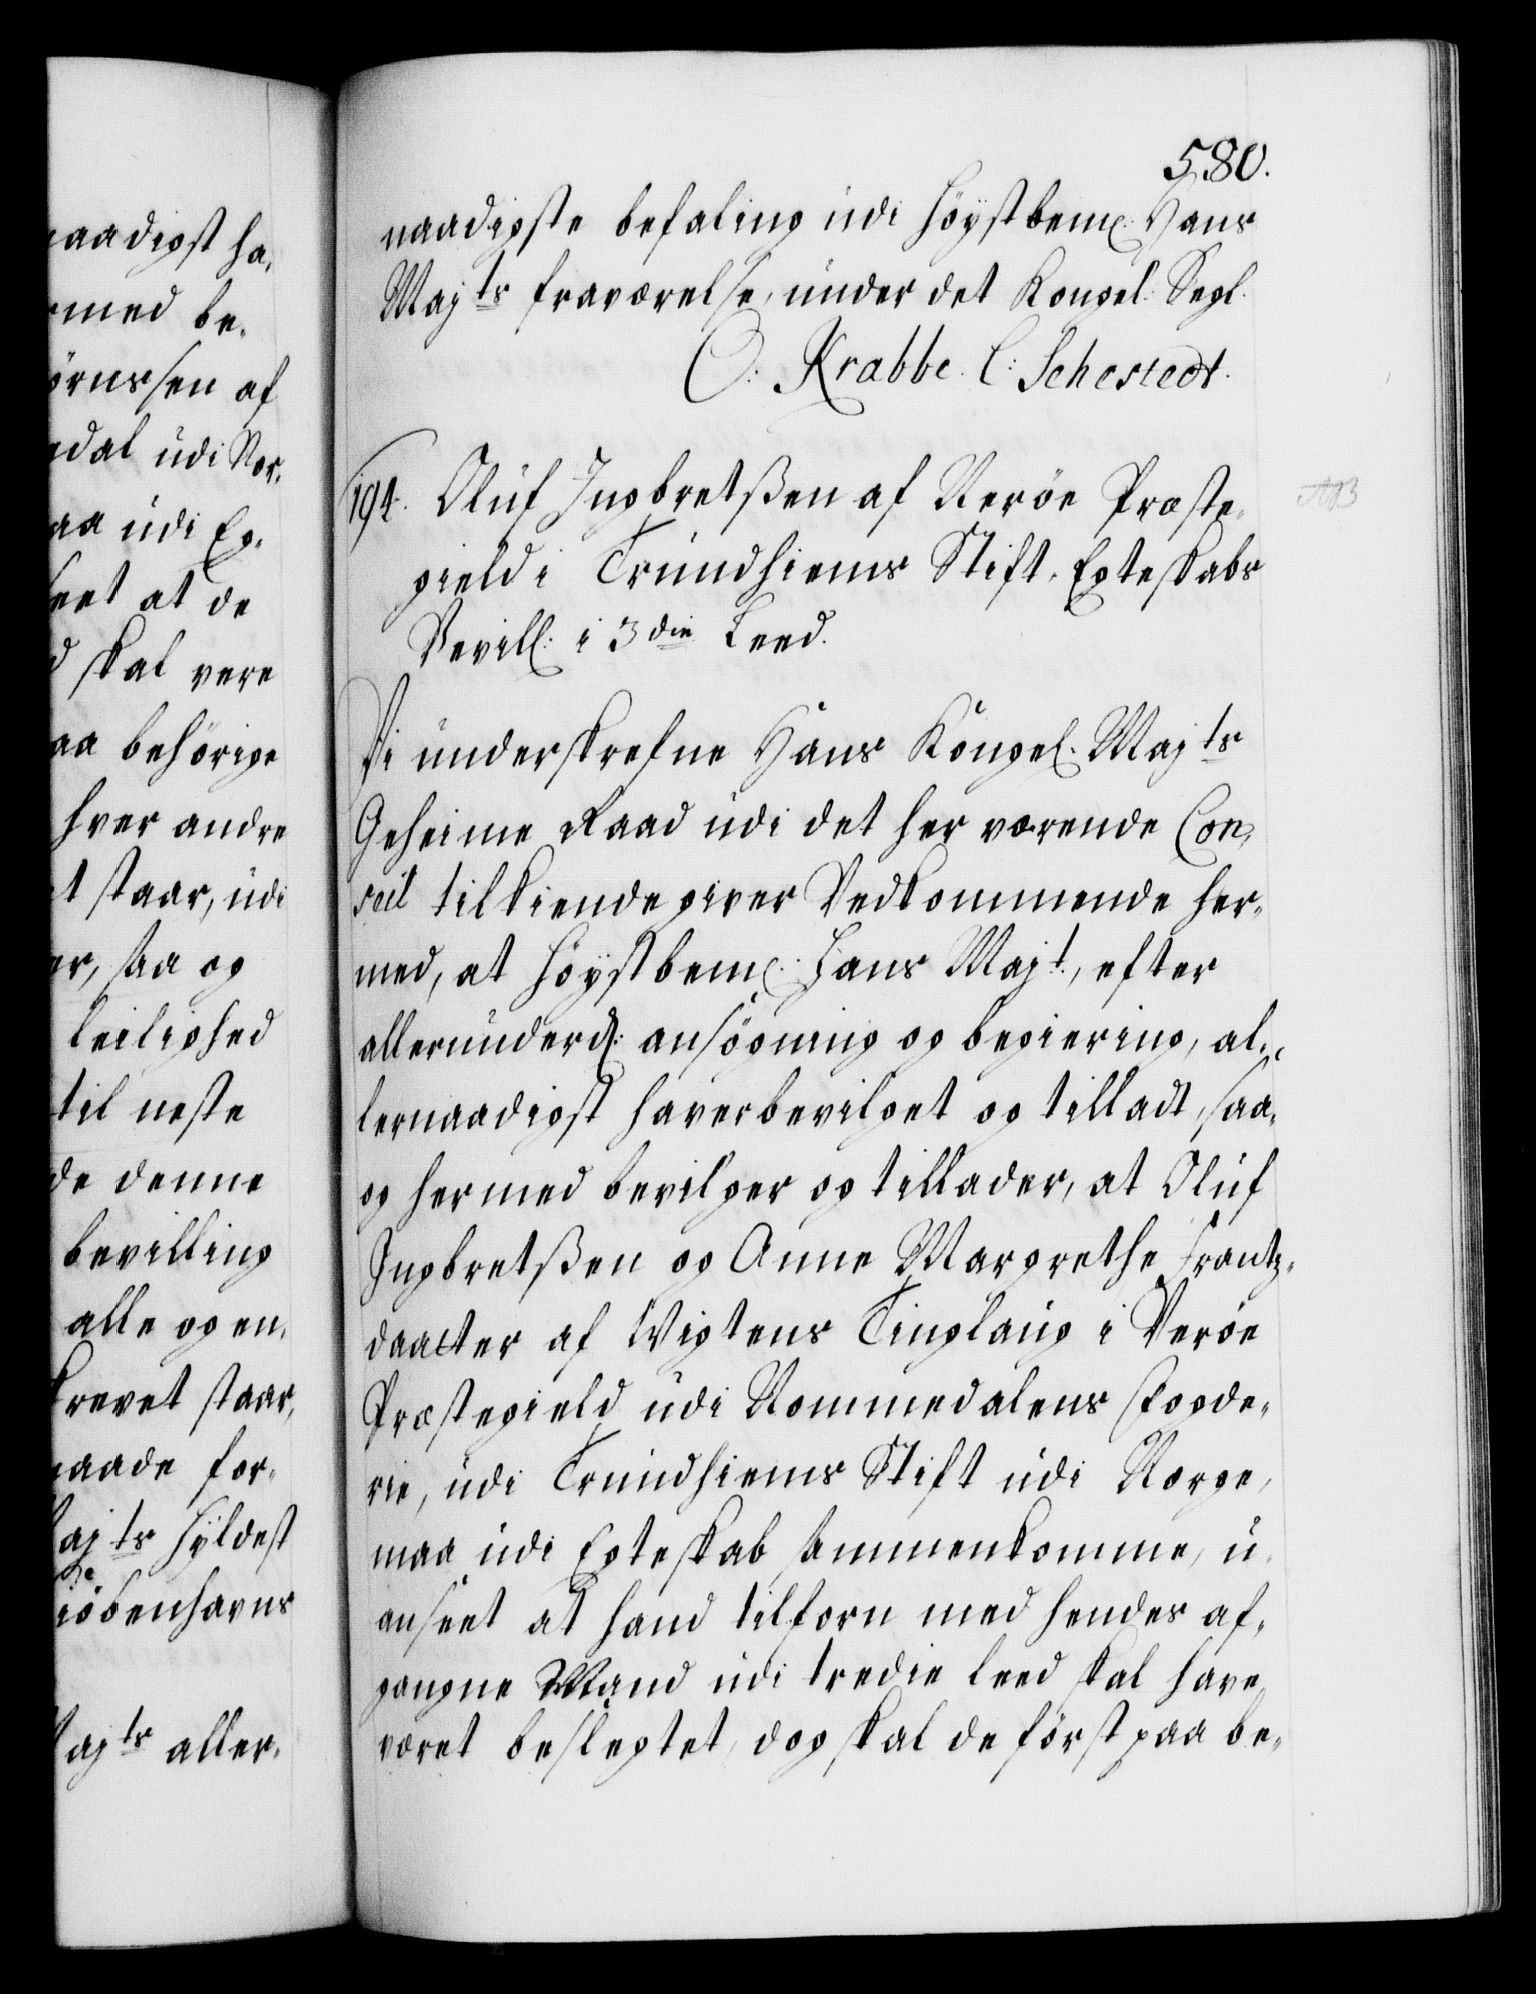 aadigst ha,
med be,
örnssen af
dal udi Nor,
aa udi Eg,
seet at de
d skal vere
aa behörige
hver andre
t staar, udi
er, saa og
leilighed
til neste
de denne
bevilling
alle og en,
krevet staar,
naade for,
ajts Hyldest
iöbenhavns
ajts aller,
580.
naadigste befaling udi Höystbemt. Hans
Majts fraværelse, under det Kongel: Segl.
O: Krabbe. C: Sehestedt.
194. Oluf Ingbretßen af Nerøe Præste,
gield i Trundhiems Stift, Egteskabs
Bevill: i 3die Leed.
Vi underskrefne Hans Kongel. Majts
Geheime Raad udi det her værende Con,
seil tilkiendegiver Vedkommende her,
med, at Höystbemt. Hans Majt., efter
allerunderd: ansögning og begiering, al,
lernaadigst haver bevilget og tilladt, saa,
og hermed bevilger og tillader, at Oluf
Ingbretßen og Anne Margrethe Frantz,
daatter af Wigtens Tinglaug i Nerøe
Præstegield udi Nommedalens Fogde,
rie, udi Trundhiems Stift udi Norge,
maa udi Egteskab sammenkomme, u,
anseet at hand tilforn med hendes af,
gangne Mand udi tredie leed skal have
været beslegtet, dog skal de först paa be,